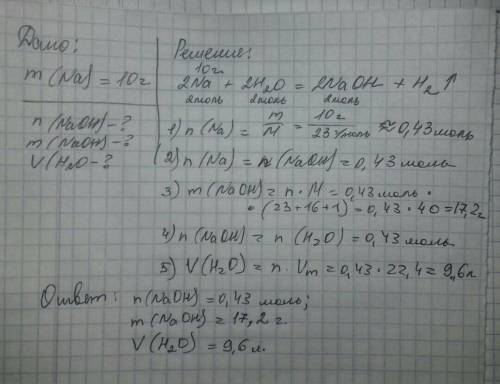 Дано:
m(Na) = 10г
n(NaOH) - ?
m(NaOH) - ?
V(H₂O) - ?
Решение:
10г
2Na + 2H₂O = 2NaOH + H₂↑
2моль 2моль 2моль
1) n(Na) = m/M = 10г/23г/моль ≈ 0,43моль
2) n(Na) = n(NaOH) = 0,43 моль
3) m(NaOH) = n · M = 0,43моль ·
· (23+16+1) = 0,43 · 40 = 17,2г
4) n(NaOH) = n(H₂O) = 0,43 моль
5) V(H₂O) = n · Vm = 0,43 · 22,4 = 9,6л
Ответ: n(NaOH) = 0,43 моль;
m(NaOH) = 17,2 г.
V(H₂O) = 9,6 л.